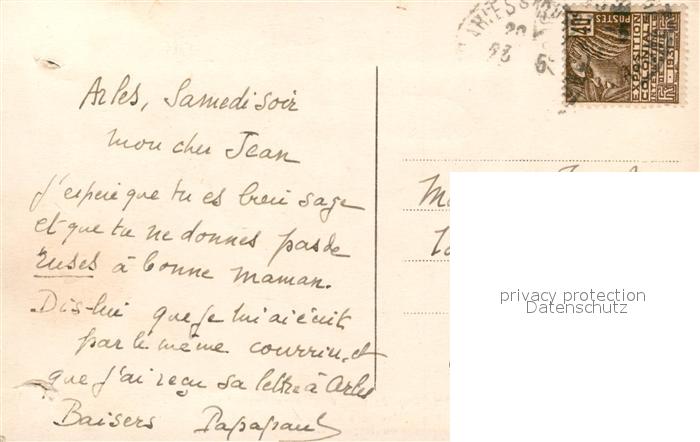 Arles, Samedi soir
mon cher Jean
J'espère que tu es bien sage
et que tu ne donnes pas de
ruses à bonne maman.
Dis-lui que je lui ai écrit
par le même courrier, et
que j'ai reçu sa lettre à Arles
Baisers Papapaul
ARLES
POSTES
40c
EXPOSITION
COLONIALE
INTERNATIONALE
PARIS 1931
privacy protection
Datenschutz